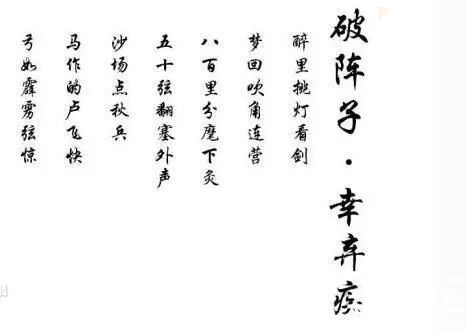 破阵子·幸弃疾
醉里挑灯看剑
梦回吹角连营
八百里分麾下灸
五十弦翻塞外声
沙场点秋兵
马作的卢飞快
弓如霹雳弦惊